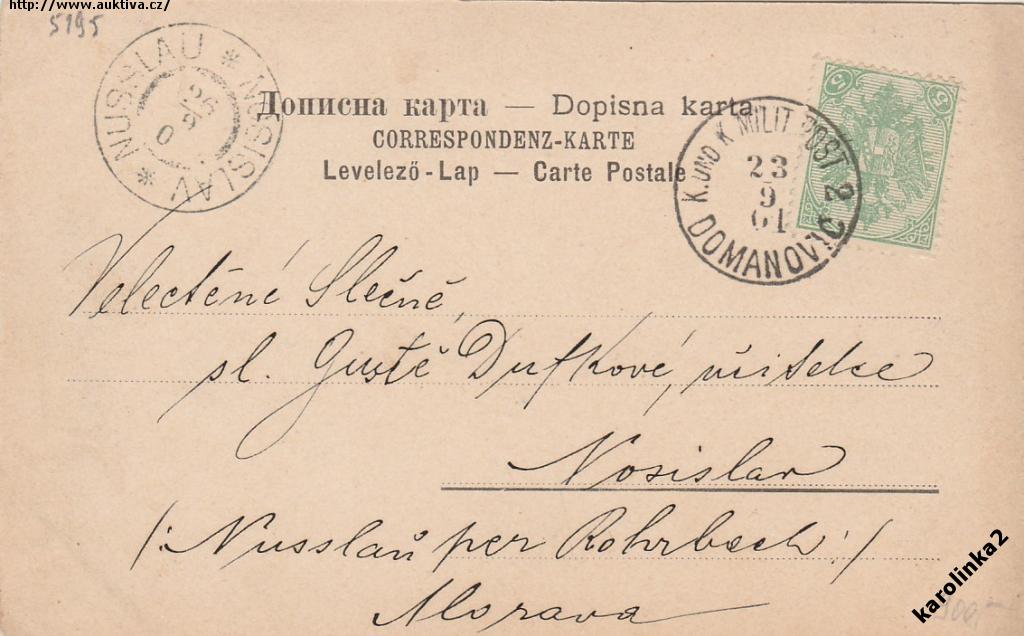 http://www.auktiva.cz/
5195
* NUSSLAU * NOSISLAV
26
9
0
Дописна карта — Dopisna karta
CORRESPONDENZ-KARTE
Levelező-Lap — Carte Postale
K. UND K. MILIT. POST 2
23
9
01
DOMANOVIĆ
5 5
Velectěné Slečně,
sl. Gustě Dufkové, učitelce
Nosislav
/: Nusslau per Rohrbach :/
Morava
karolinka2